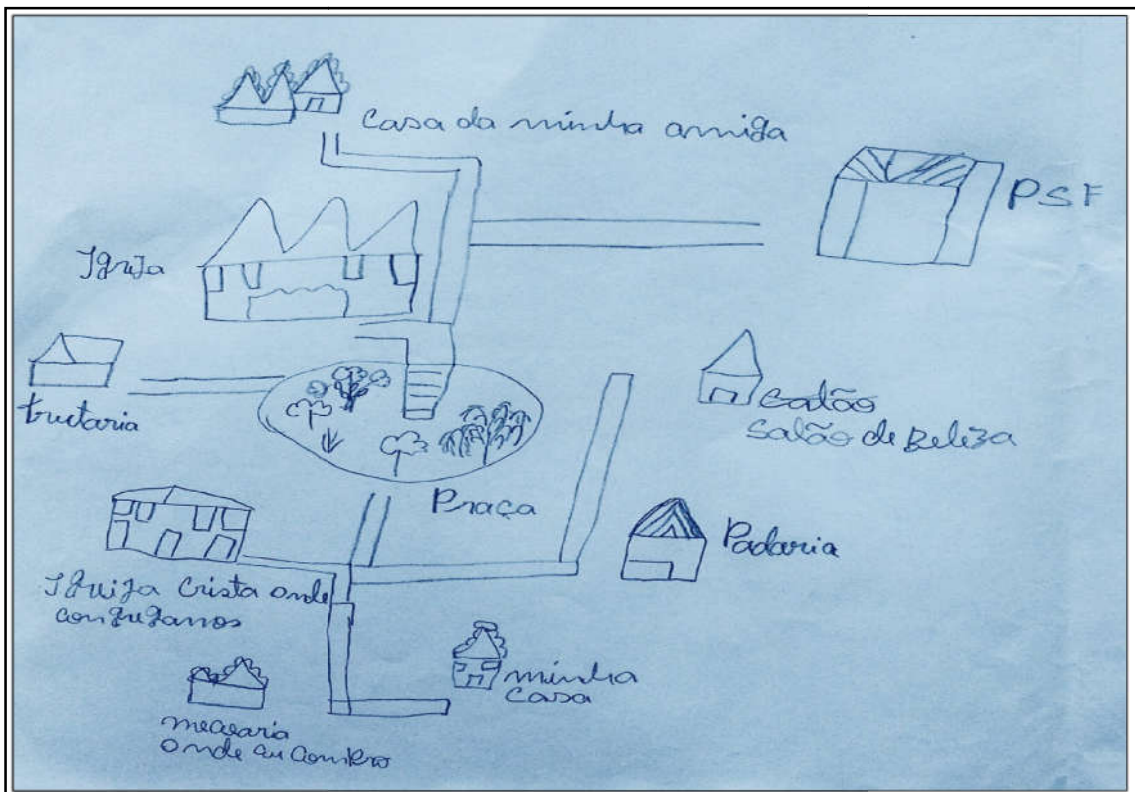 Casa da minha amiga
PSF
Igrija
tructaria
Salão
Salão de Beleza
Praça
Padaria
Igruija Crista onde
congreganos
minha
Casa
mecearia
onde eu compro